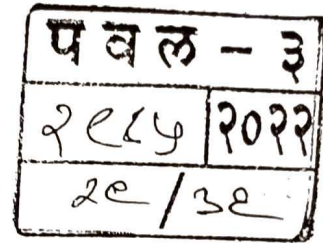 प व ल - ३
२९८५ २०२२
२९ / ३९